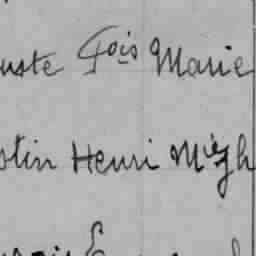 uste Fçois Marie
stin Henri Migh